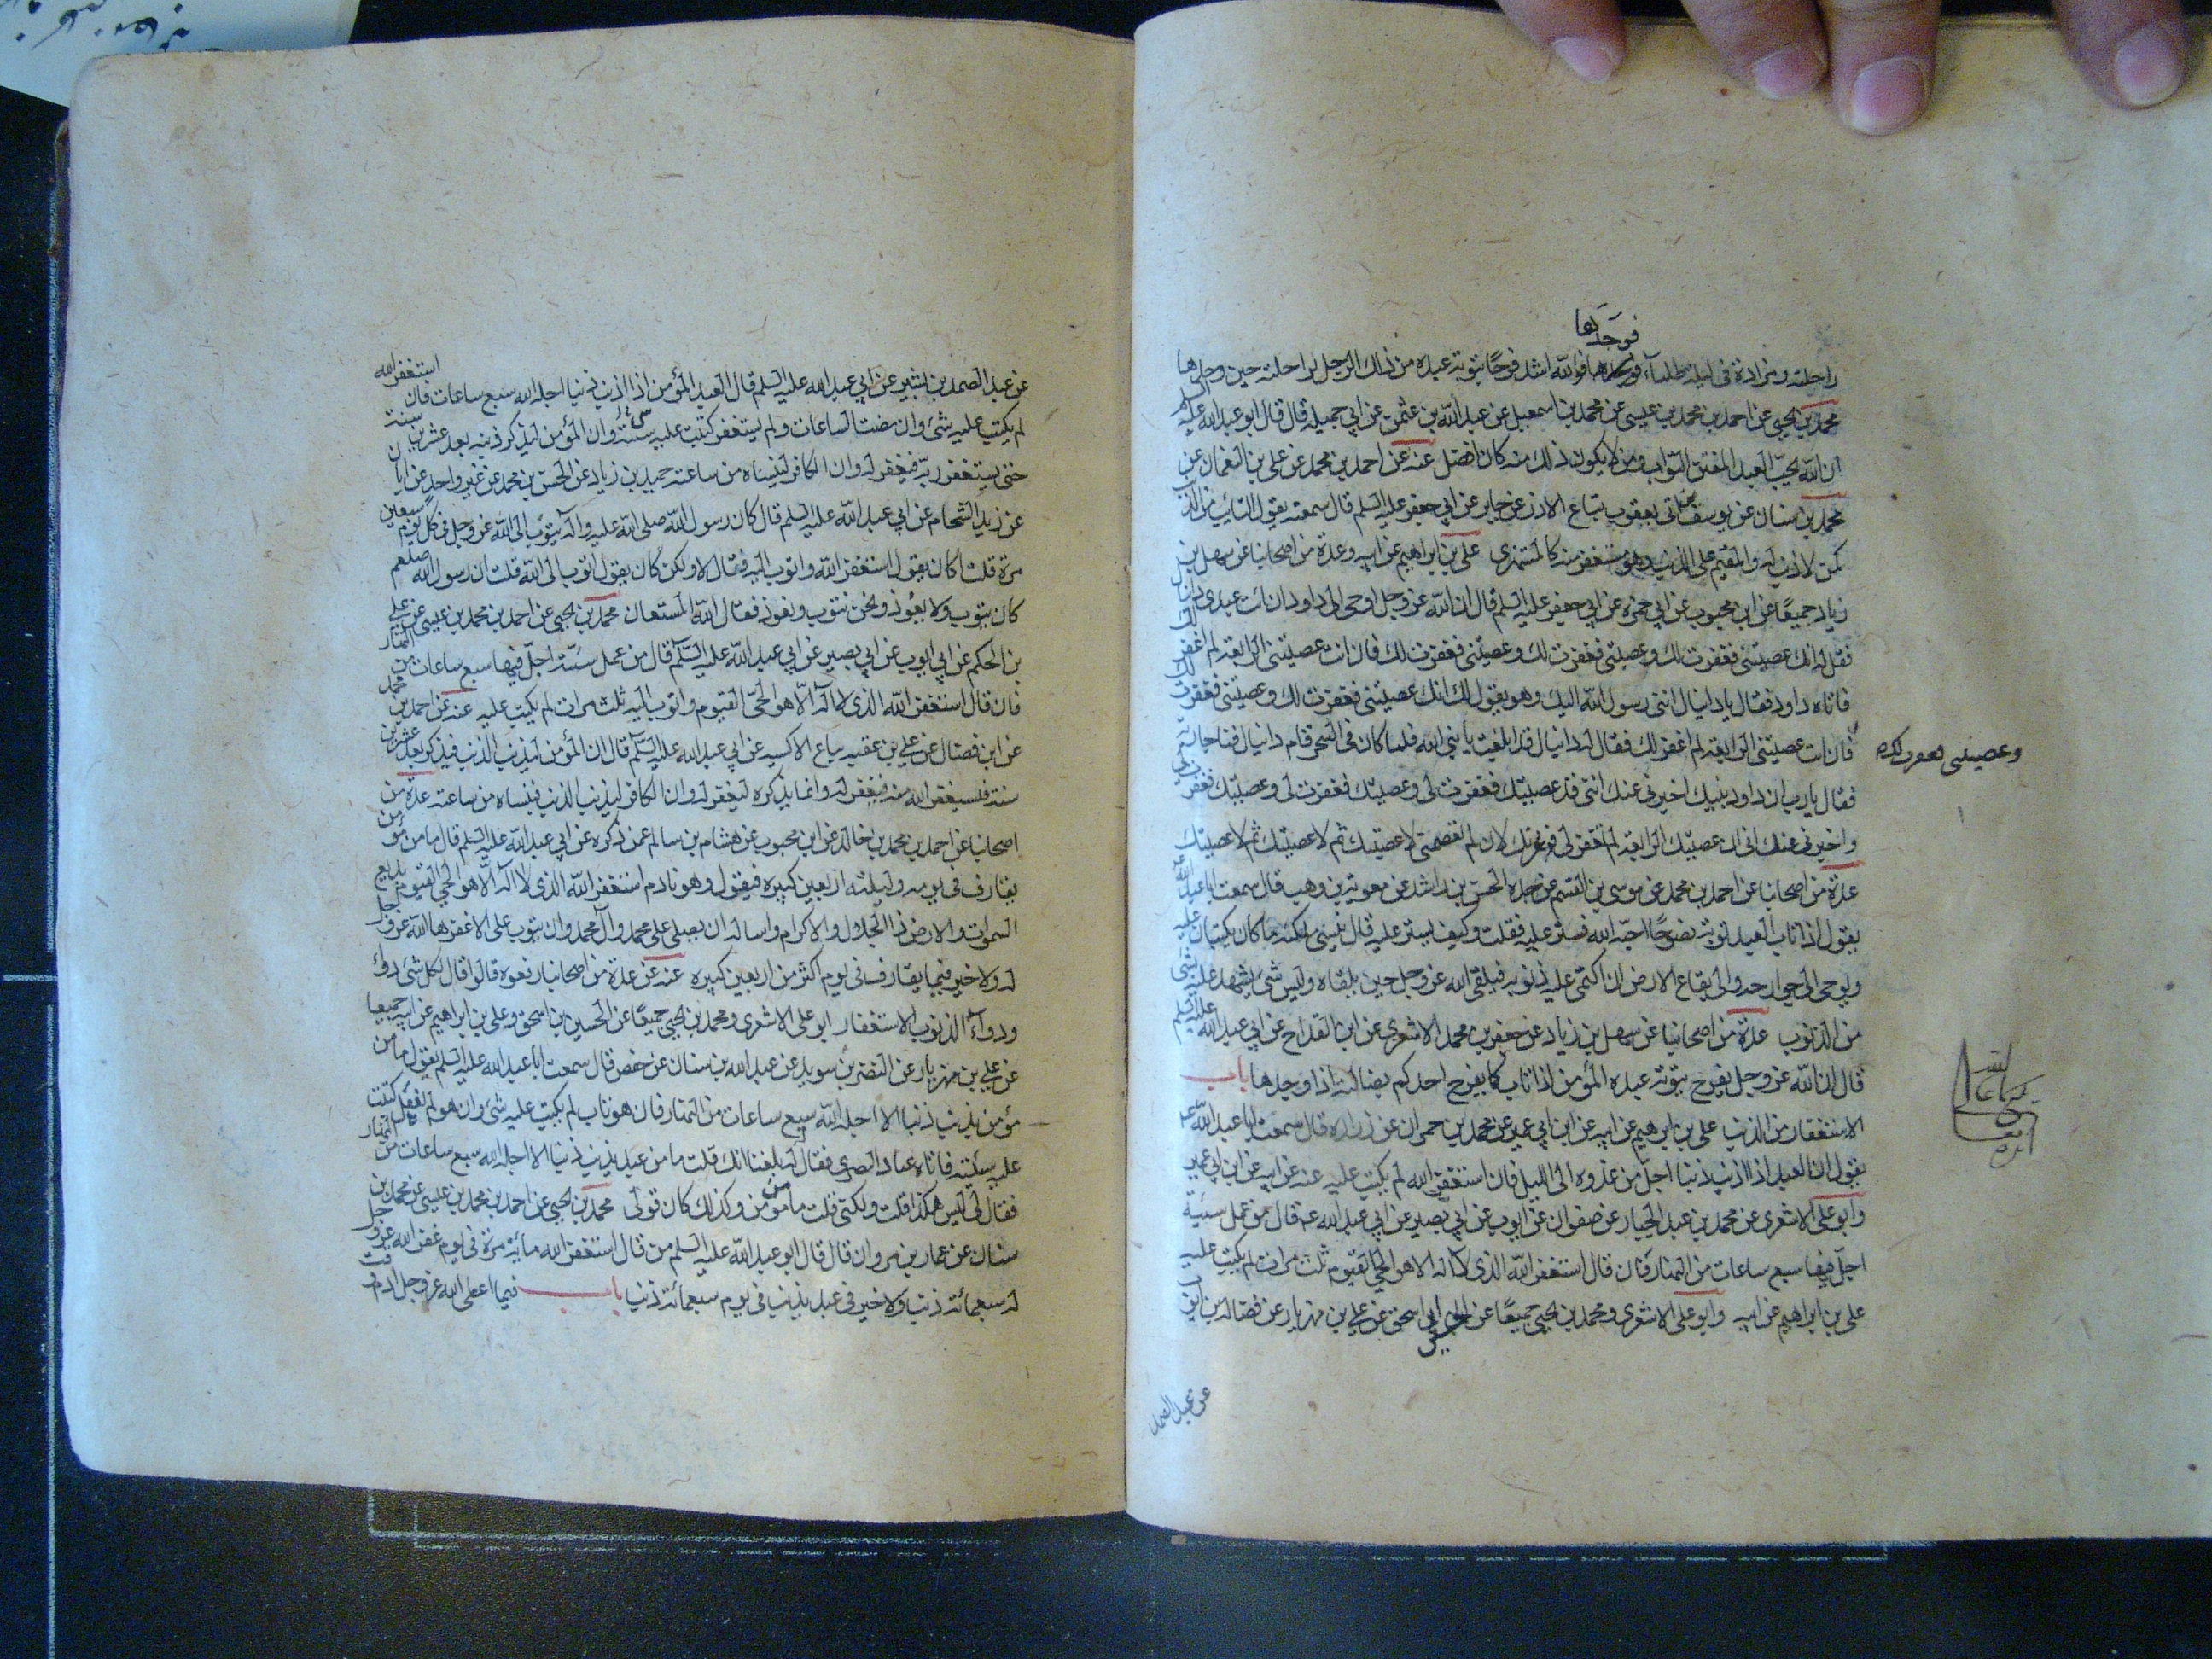 فوجدها
راحلته ومزاده في ليلة ظلماء فوجدها فالله اشد فرحًا بتوبة عبده من ذلك الرجل براحلته حين وجدها
محمد بن يحيى عن احمد بن محمد بن عيسى عن محمد بن اسمعيل عن عبد الله بن عثمن عن ابي جميلة قال قال ابو عبد الله عليه السلم
ان الله يحب العبد المفتن التواب ومن لا يكون ذلك منه كان افضل عنه عن احمد بن محمد عن علي بن النعمان عن
محمد بن سنان عن يوسف بن ابي يعقوب بياع الارز عن جابر عن ابي جعفر عليه السلم قال سمعته يقول التائب من الذنب
كمن لا ذنب له والمقيم على الذنب وهو مستغفر منه كالمستهزئ علي بن ابراهيم عن ابيه وعدة من اصحابنا عن سهل بن
زياد جميعًا عن ابن محبوب عن ابي حمزه عن ابي جعفر عليه السلم قال ان الله عز وجل اوحى الى داود ان ائت عبدي دانيال
فقل له انك عصيتني فغفرت لك وعصيتني فغفرت لك وعصيتني فغفرت لك فان انت عصيتني الرابعة لم اغفر لك
فاتاه داود فقال يا دانيال انني رسول الله اليك وهو يقول لك انك عصيتني فغفرت لك وعصيتني فغفرت لك
وعصيتني فغفرت لك
فان انت عصيتني الرابعة لم اغفر لك فقال له دانيال قد ابلغت يا نبي الله فلما كان في السحر قام دانيال فناجا ربه
فقال يا رب ان داود نبيك اخبرني عنك انني قد عصيتك فغفرت لي وعصيتك فغفرت لي وعصيتك فغفرت لي
واخبرني عنك اني ان عصيتك الرابعة لم تغفر لي فوعزتك لان لم تعصمني لاعصينك ثم لاعصينك ثم لاعصينك
عدة من اصحابنا عن احمد بن محمد عن موسى بن القسم عن جده الحسن بن راشد عن معوية بن وهب قال سمعت ابا عبد الله
يقول اذا تاب العبد توبة نصوحًا احبه الله فستر عليه فقلت وكيف يستر عليه قال ينسي ملكيه ما كان يكتبان عليه
ويوحي الى جوارحه والى بقاع الارض ان اكتمي عليه ذنوبه فيلقى الله عز وجل حين يلقاه وليس شئ يشهد عليه بشئ
من الذنوب عدة من اصحابنا عن سهل بن زياد عن جعفر بن محمد الاشعري عن ابن القداح عن ابي عبد الله عليه السلم
قال ان الله عز وجل يفرح بتوبة عبده المؤمن اذا تاب كما يفرح احدكم بضالته اذا وجدها باب
الاستغفار من الذنب علي بن ابرهيم عن ابيه عن ابن ابي عمير عن محمد بن حمران عن زراره قال سمعت ابا عبد الله ع
يقول ان العبد اذا اذنب ذنبا اجل من غدوه الى الليل فان استغفر الله لم يكتب عليه عنه عن ابيه عن ابن ابي عمير
وابو علي الاشعري عن محمد بن عبد الجبار عن صفوان عن ابي ايوب عن ابي بصير عن ابي عبد الله ع قال من عمل سيئة
اجل فيها سبع ساعات من النهار فان قال استغفر الله الذي لا اله الا هو الحي القيوم ثلث مرات لم يكتب عليه
علي بن ابراهيم عن ابيه وابو علي الاشعري ومحمد بن يحيى جميعًا عن الحسين بن اسحق عن علي بن مهزيار عن فضالة بن ايوب
عن عبد الصمد
عن عبد الصمد بن بشير عن ابي عبد الله عليه السلم قال العبد المؤمن اذا اذنب ذنبا اجله الله سبع ساعات فان استغفر الله
لم يكتب عليه شئ وان مضت الساعات ولم يستغفر كتبت عليه سيئة وان المؤمن ليذكر ذنبه بعد عشرين سنة
حتى يستغفر ربه فيغفر له وان الكافر لينساه من ساعته حميد بن زياد عن الحسن بن محمد عن غير واحد عن ابان
عن زيد الشحام عن ابي عبد الله عليه السلم قال كان رسول الله صلى الله عليه واله يتوب الى الله عز وجل في كل يوم سبعين
مرة قلت اكان يقول استغفر الله واتوب اليه فقال لا ولكن كان يقول اتوب الى الله قلت ان رسول الله صلعم
كان يتوب ولا يعوذ ونحن نتوب ونعوذ فقال الله المستعان محمد بن يحيى عن احمد بن محمد بن عيسى عن علي
بن الحكم عن ابي ايوب عن ابي بصير عن ابي عبد الله عليه السلم قال من عمل سيئة اجل فيها سبع ساعات من النهار
فان قال استغفر الله الذي لا اله الا هو الحي القيوم واتوب اليه ثلث مرات لم يكتب عليه عنه عن احمد بن محمد
عن ابن فضال عن علي بن عقبه بياع الاكسيه عن ابي عبد الله عليه السلم قال ان المؤمن ليذنب الذنب فيذكر بعد عشرين
سنة فيستغفر الله منه فيغفر له وانما يذكره ليغفر له وان الكافر ليذنب الذنب فينساه من ساعته عدة من
اصحابنا عن احمد بن محمد بن خالد عن ابن محبوب عن هشام بن سالم عمن ذكره عن ابي عبد الله عليه السلم قال ما من مؤمن
يقارف في يومه وليلته اربعين كبيره فيقول وهو نادم استغفر الله الذي لا اله الا هو الحي القيوم بديع
السموات والارض ذا الجلال والاكرام واساله ان يصلي على محمد وآل محمد وان يتوب علي الا غفرها الله عز وجل
له ولا خير فيما يقارف في يوم اكثر من اربعين كبيره عنه عن عدة من اصحابنا رفعوه قالوا قال لكل شئ دواء
ودواء الذنوب الاستغفار ابو علي الاشعري ومحمد بن يحيى جميعًا عن الحسين بن اسحق وعلي بن ابراهيم عن ابيه جميعا
عن علي بن مهزيار عن النضر بن سويد عن عبد الله بن سنان عن حفص قال سمعت ابا عبد الله عليه السلم يقول ما من
مؤمن يذنب ذنبا الا اجله الله سبع ساعات من النهار فان هو تاب لم يكتب عليه شئ وان هو لم يفعل كتبت
عليه سيئة فاتاه عباد البصري فقال له بلغنا انك قلت ما من عبد يذنب ذنبا الا اجله الله سبع ساعات من النهار
فقال لي ليس هكذا قلت ولكني قلت ما من مؤمن وكذلك كان قولي محمد بن يحيى عن احمد بن محمد بن عيسى عن محمد بن
سنان عن عمار بن مروان قال قال ابو عبد الله عليه السلم من قال استغفر الله مائة مرة في يوم غفر الله عز وجل
له سبعمائة ذنب ولا خير في عبد يذنب في يوم سبعمائة ذنب باب فيما اعطى الله عز وجل ادم